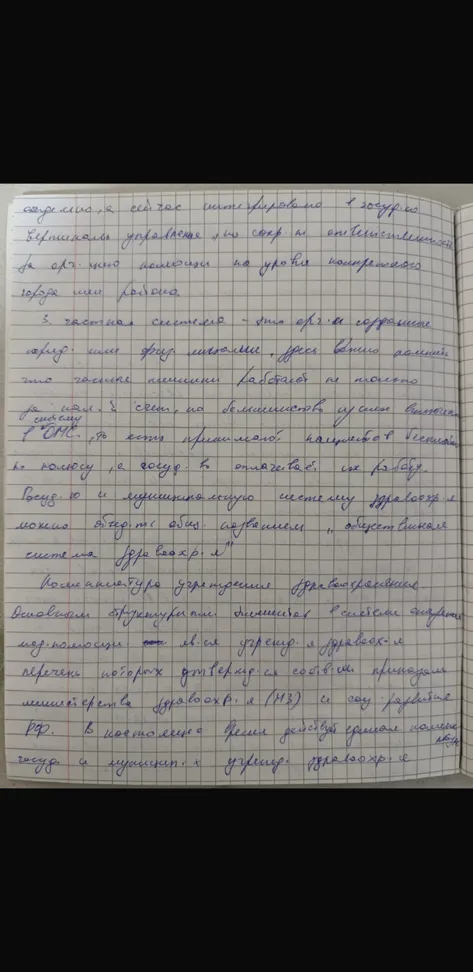 отдельно, а сейчас интегрировано в госуд-ю
вертикаль управления, но сохр-я ответственность
за орг-цию помощи на уровне конкретного
города или района.
3. частная система - это орг-и созданные
юрид. или физ. лицами, здесь важно помнить
что частные клиники работают не только
за нал. счет, но большинство из них включены
в систему ОМС, то есть принимают пациентов бесплатно
по полюсу, а госуд-во оплачивает их работу.
Госуд-ю и муниципальную систему здравоохр-я
можно объед-ть общ. названием "общественная
система здравоохр-я"
Номенклатура учреждения здравоохранения.
Основным структурным в системе оказания
мед. помощи яв-ся учрежд-я здравоох-я
перечень которых утвержд-ся соотв-м приказом
министерства здравоохр-я (МЗ) и соц. развития
РФ. В настоящие время действует единая номенклатура
госуд и муницип-х учрежд. здравоохр-я